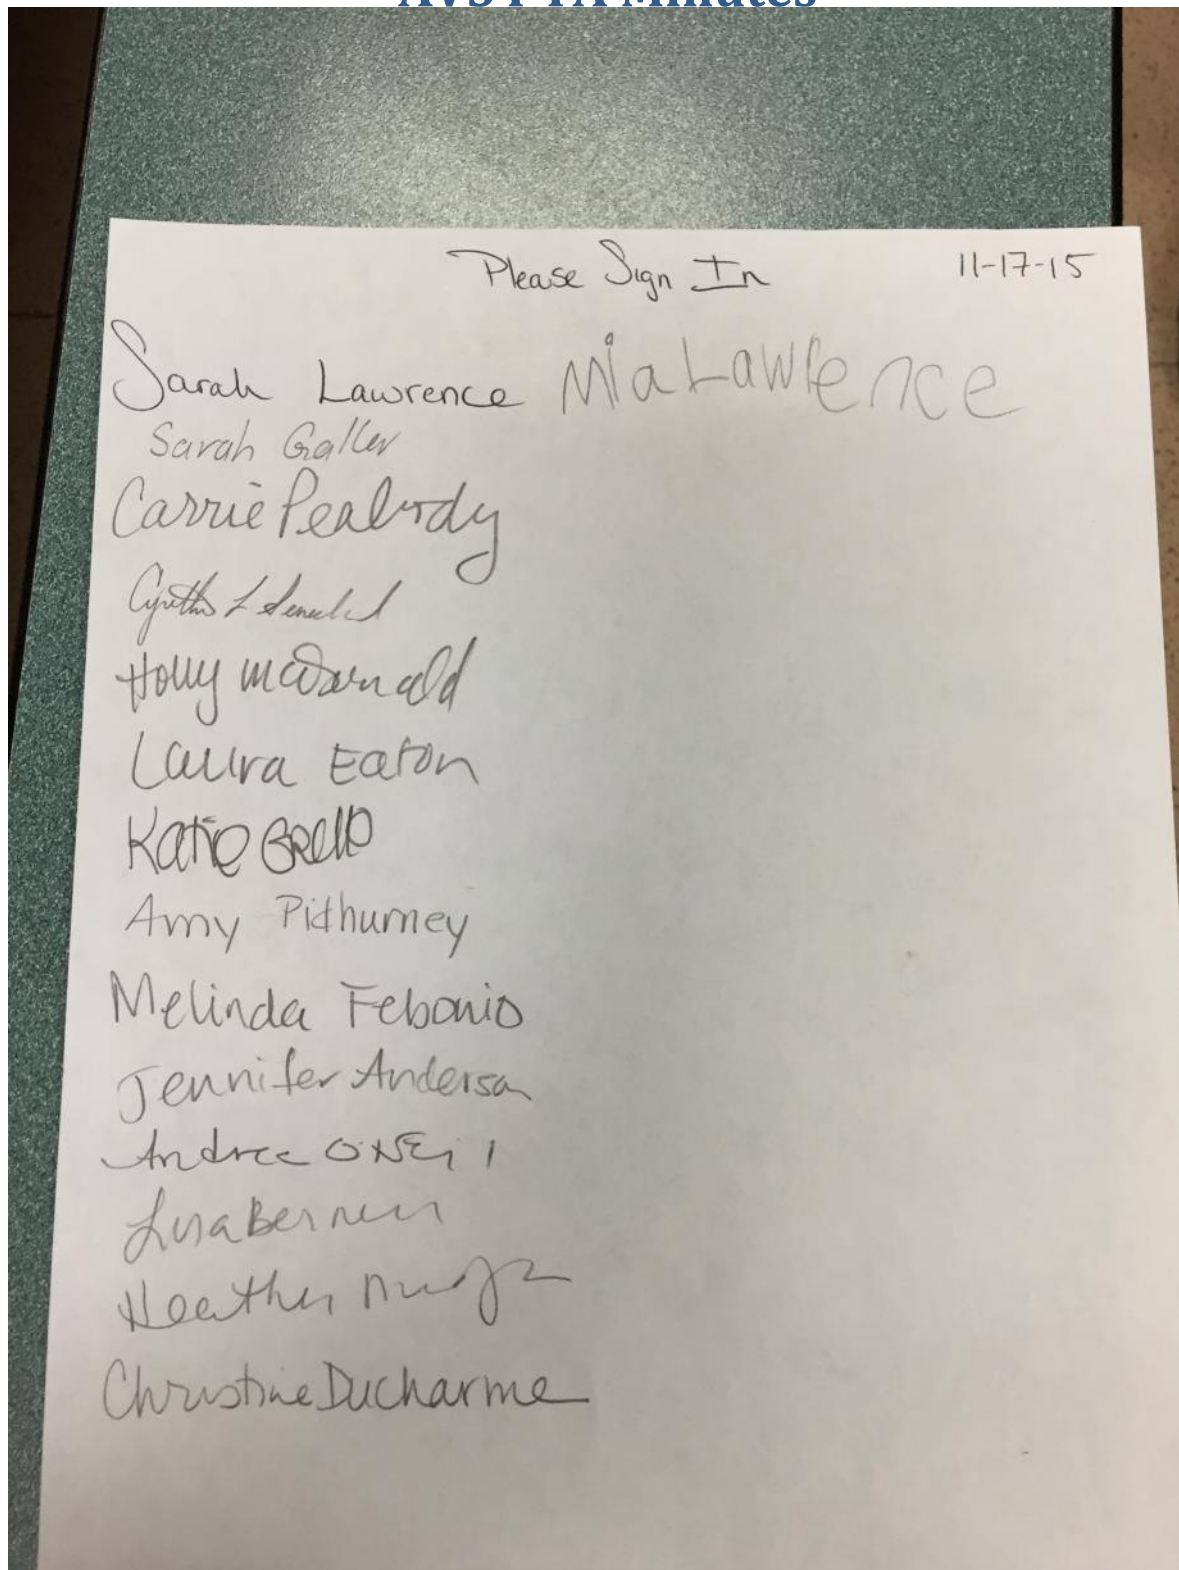 AVS PTA Minutes
Please Sign In 11-17-15
Sarah Lawrence Mia Lawrence
Sarah Galler
Carrie Peabody
Cynthia L
Holly McDonald
Laura Eaton
Katie Grello
Amy Pithurney
Melinda Febonio
Jennifer Anderson
Andrea O'Neil
Lisa
Heather
Christine Ducharme